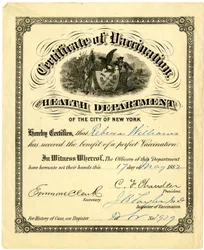 Certificate of Vaccination
HEALTH DEPARTMENT
OF THE CITY OF NEW YORK.
Hereby Certifies, that Rebecca Williams
has received the benefit of a perfect Vaccination:
In Witness Whereof, The Officers of this Department
have hereunto set their hands this 17 day of May 1882
C. F. Chandler
President.
Emmons Clark
Secretary.
Inspector of Vaccination.
For History of Case, see Register